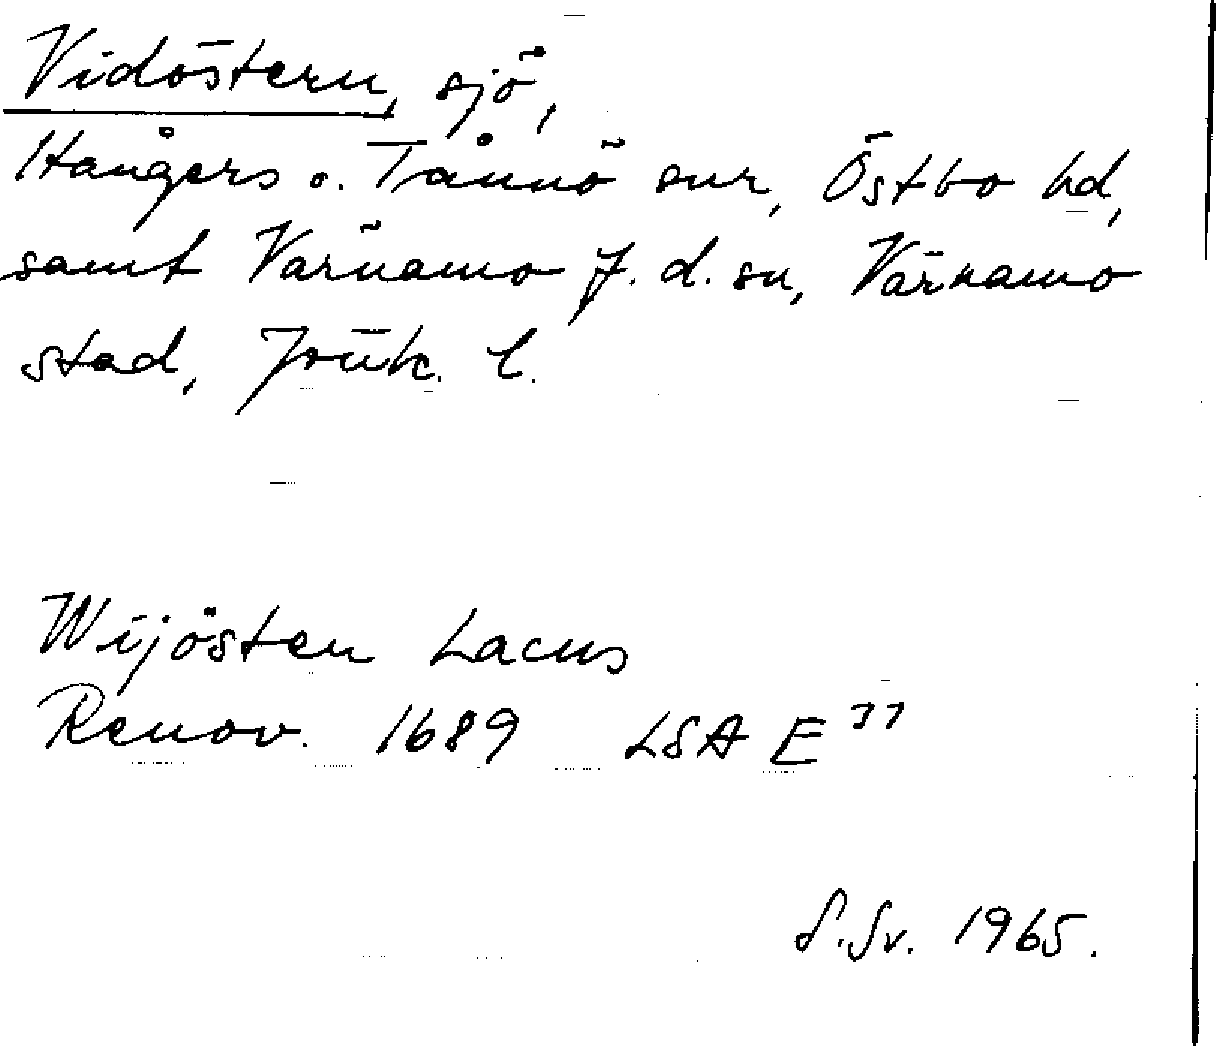 Vidöstern, sjö,
Hångers o. Tånnö snr, Östbo hd,
samt Värnamo f. d. sn, Värnamo
stad, Jönk. l.
Wijösten Lacus
Renov. 1689 LSA E 77
S. Sv. 1965.